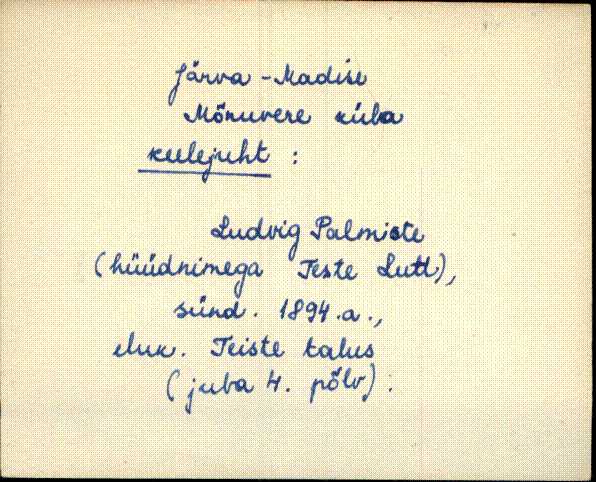 Järva-Madise
Mõnuvere küla
keelejuht :
Ludvig Palmiste
(hüüdnimega Teste Lutt),
sünd. 1894.a.,
eluk. Teiste talus
(juba 4. põlv).